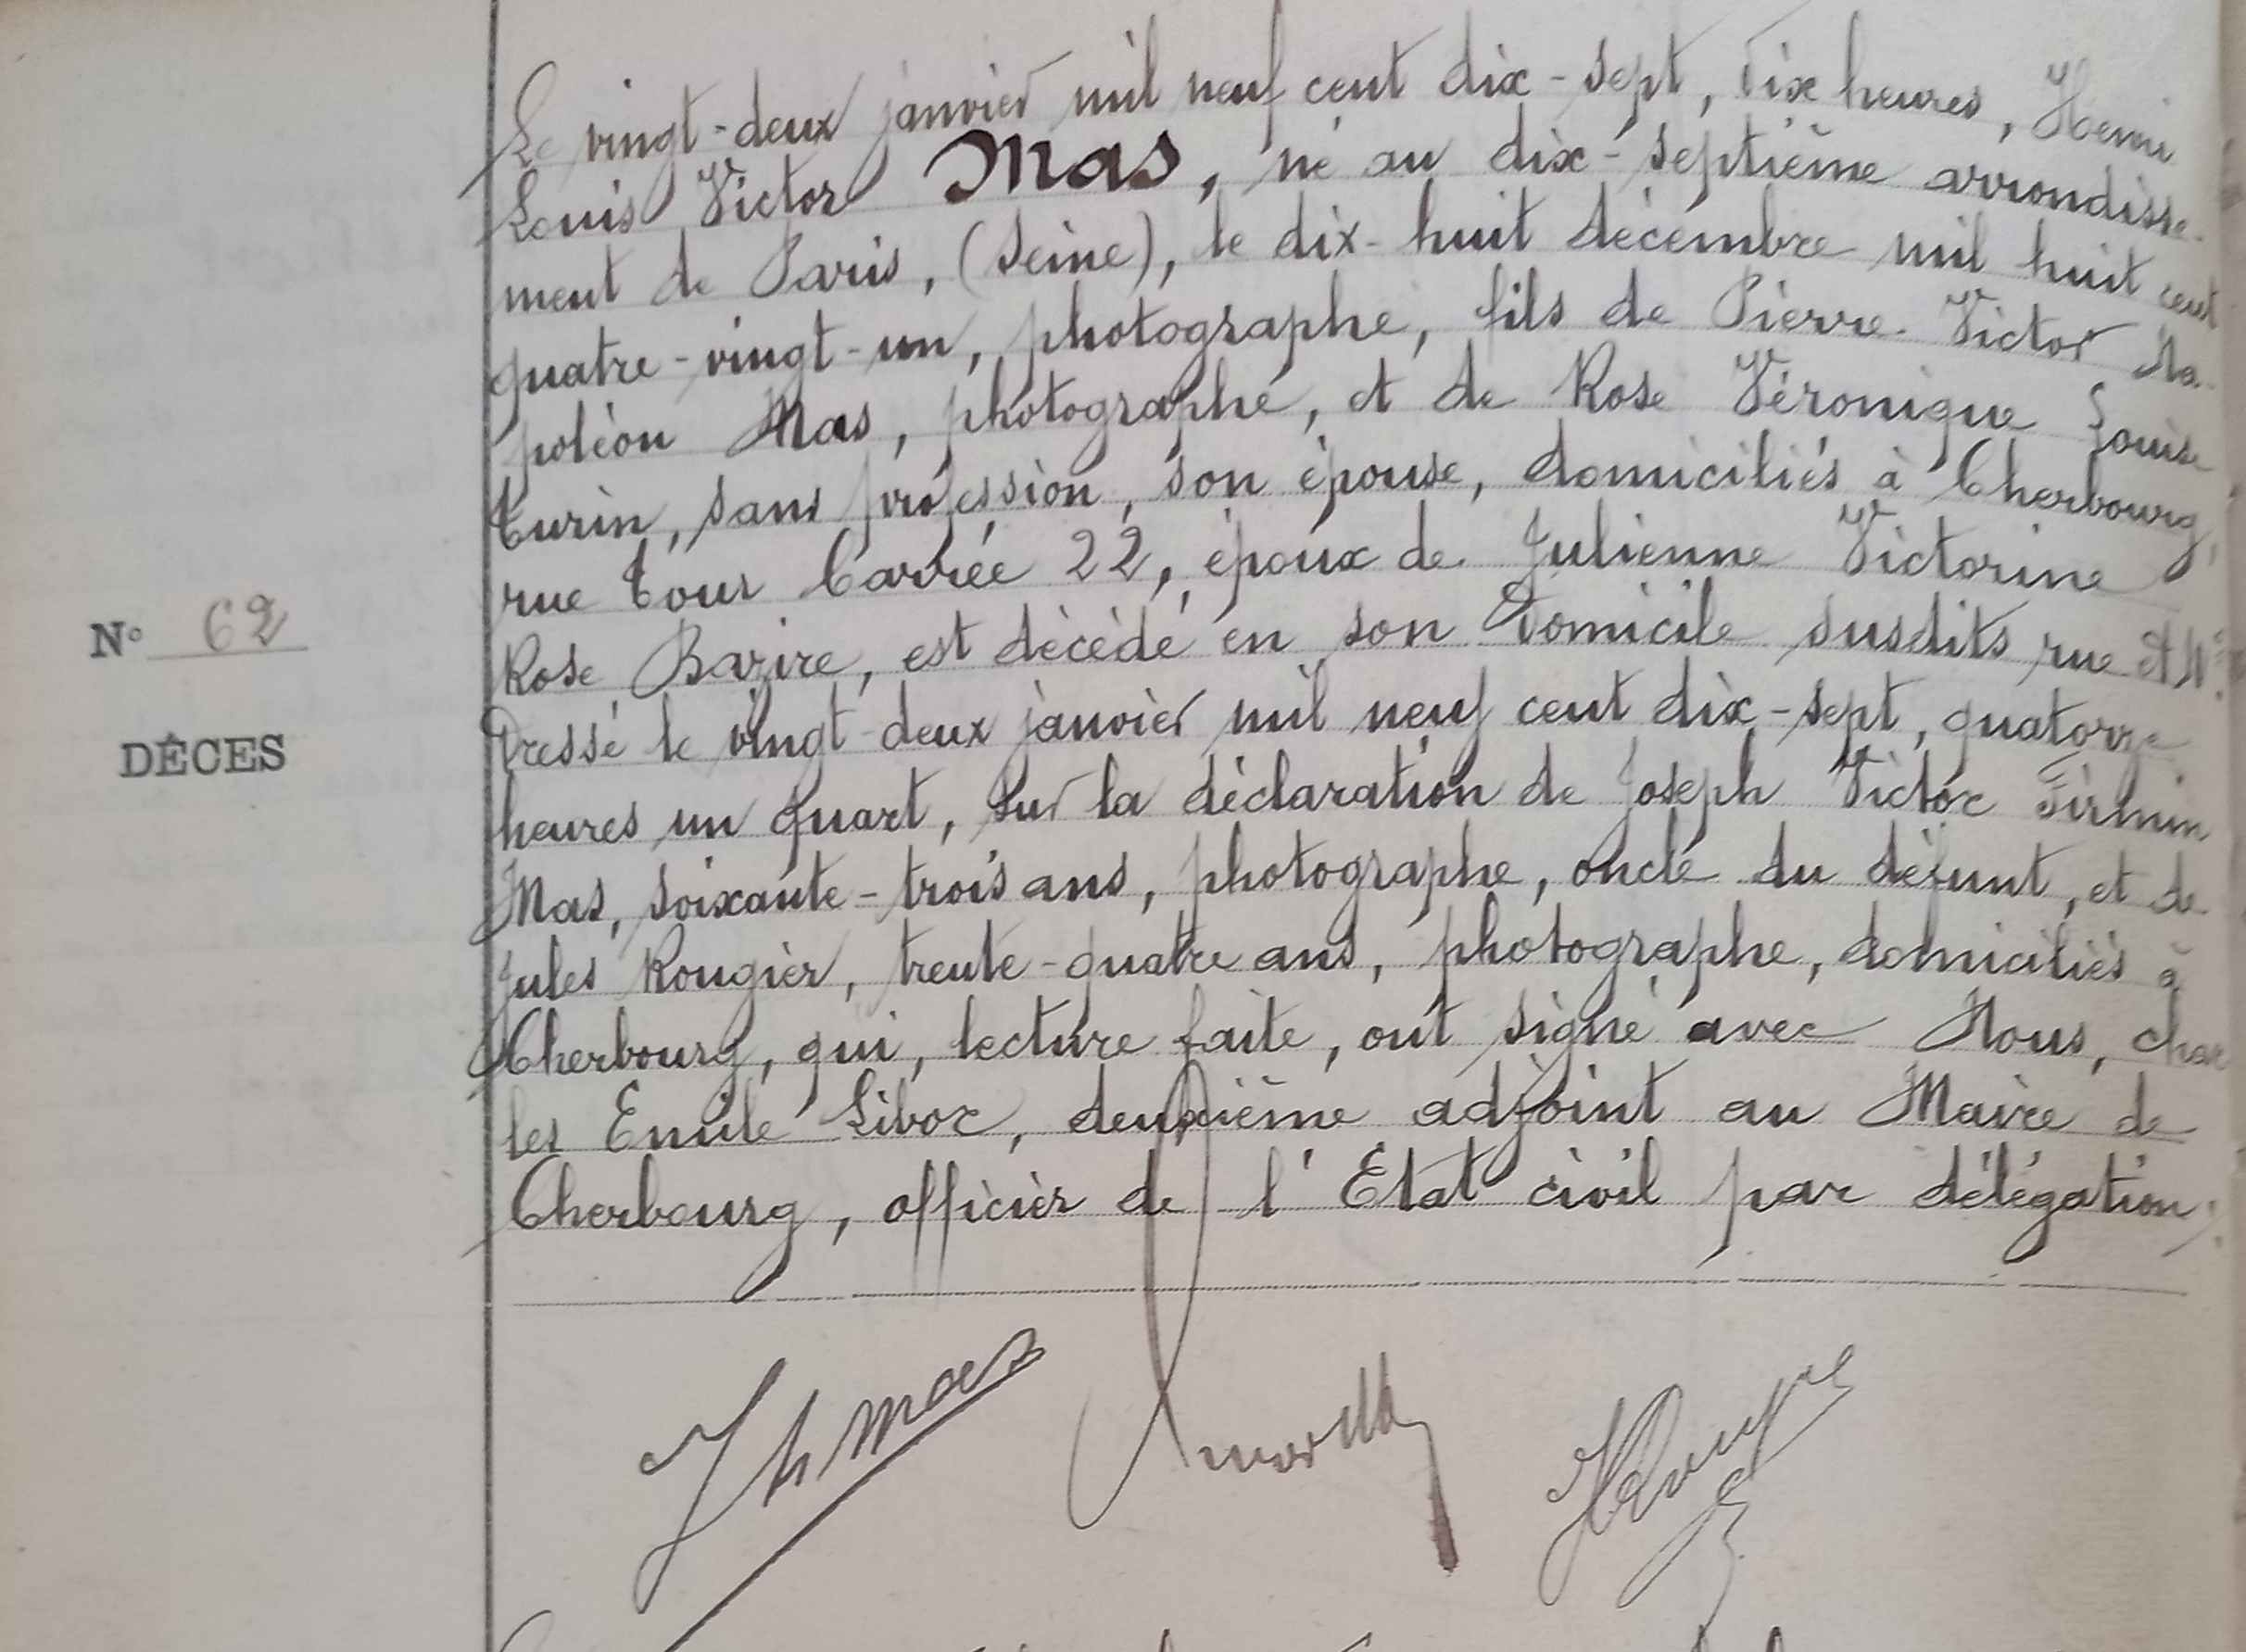 Le vingt-deux janvier mil neuf cent dix-sept, Dix heures, Henri
Louis Victor Mas, né au dix-septième arrondisse-
ment de Paris, (Seine), le dix-huit décembre mil huit cent
quatre-vingt-un, photographe, fils de Pierre-Victor Na-
poléon Mas, photographe, et de Rose Véronique Louise
Turin, sans profession, son épouse, domiciliés à Cherbourg,
rue Tour Carrée 22, époux de Julienne Victorine
Rose Bazire, est décédé en son Domicile susdits rue et N°.
N° 62
Dressé le vingt-deux janvier mil neuf cent dix-sept, quatorze
DÉCES
heures un quart, Sur la déclaration de Joseph Victor Firmin
Mas, soixante-trois ans, photographe, oncle du défunt, et de
Jules Rougier, trente-quatre ans, photographe, domiciliés à
Cherbourg, qui, lecture faite, ont signé avec Nous, Char
les Emile Liboz, deuxième adjoint au Maire de
Cherbourg, officier de l'Etat civil par délégation.
Jh Mas